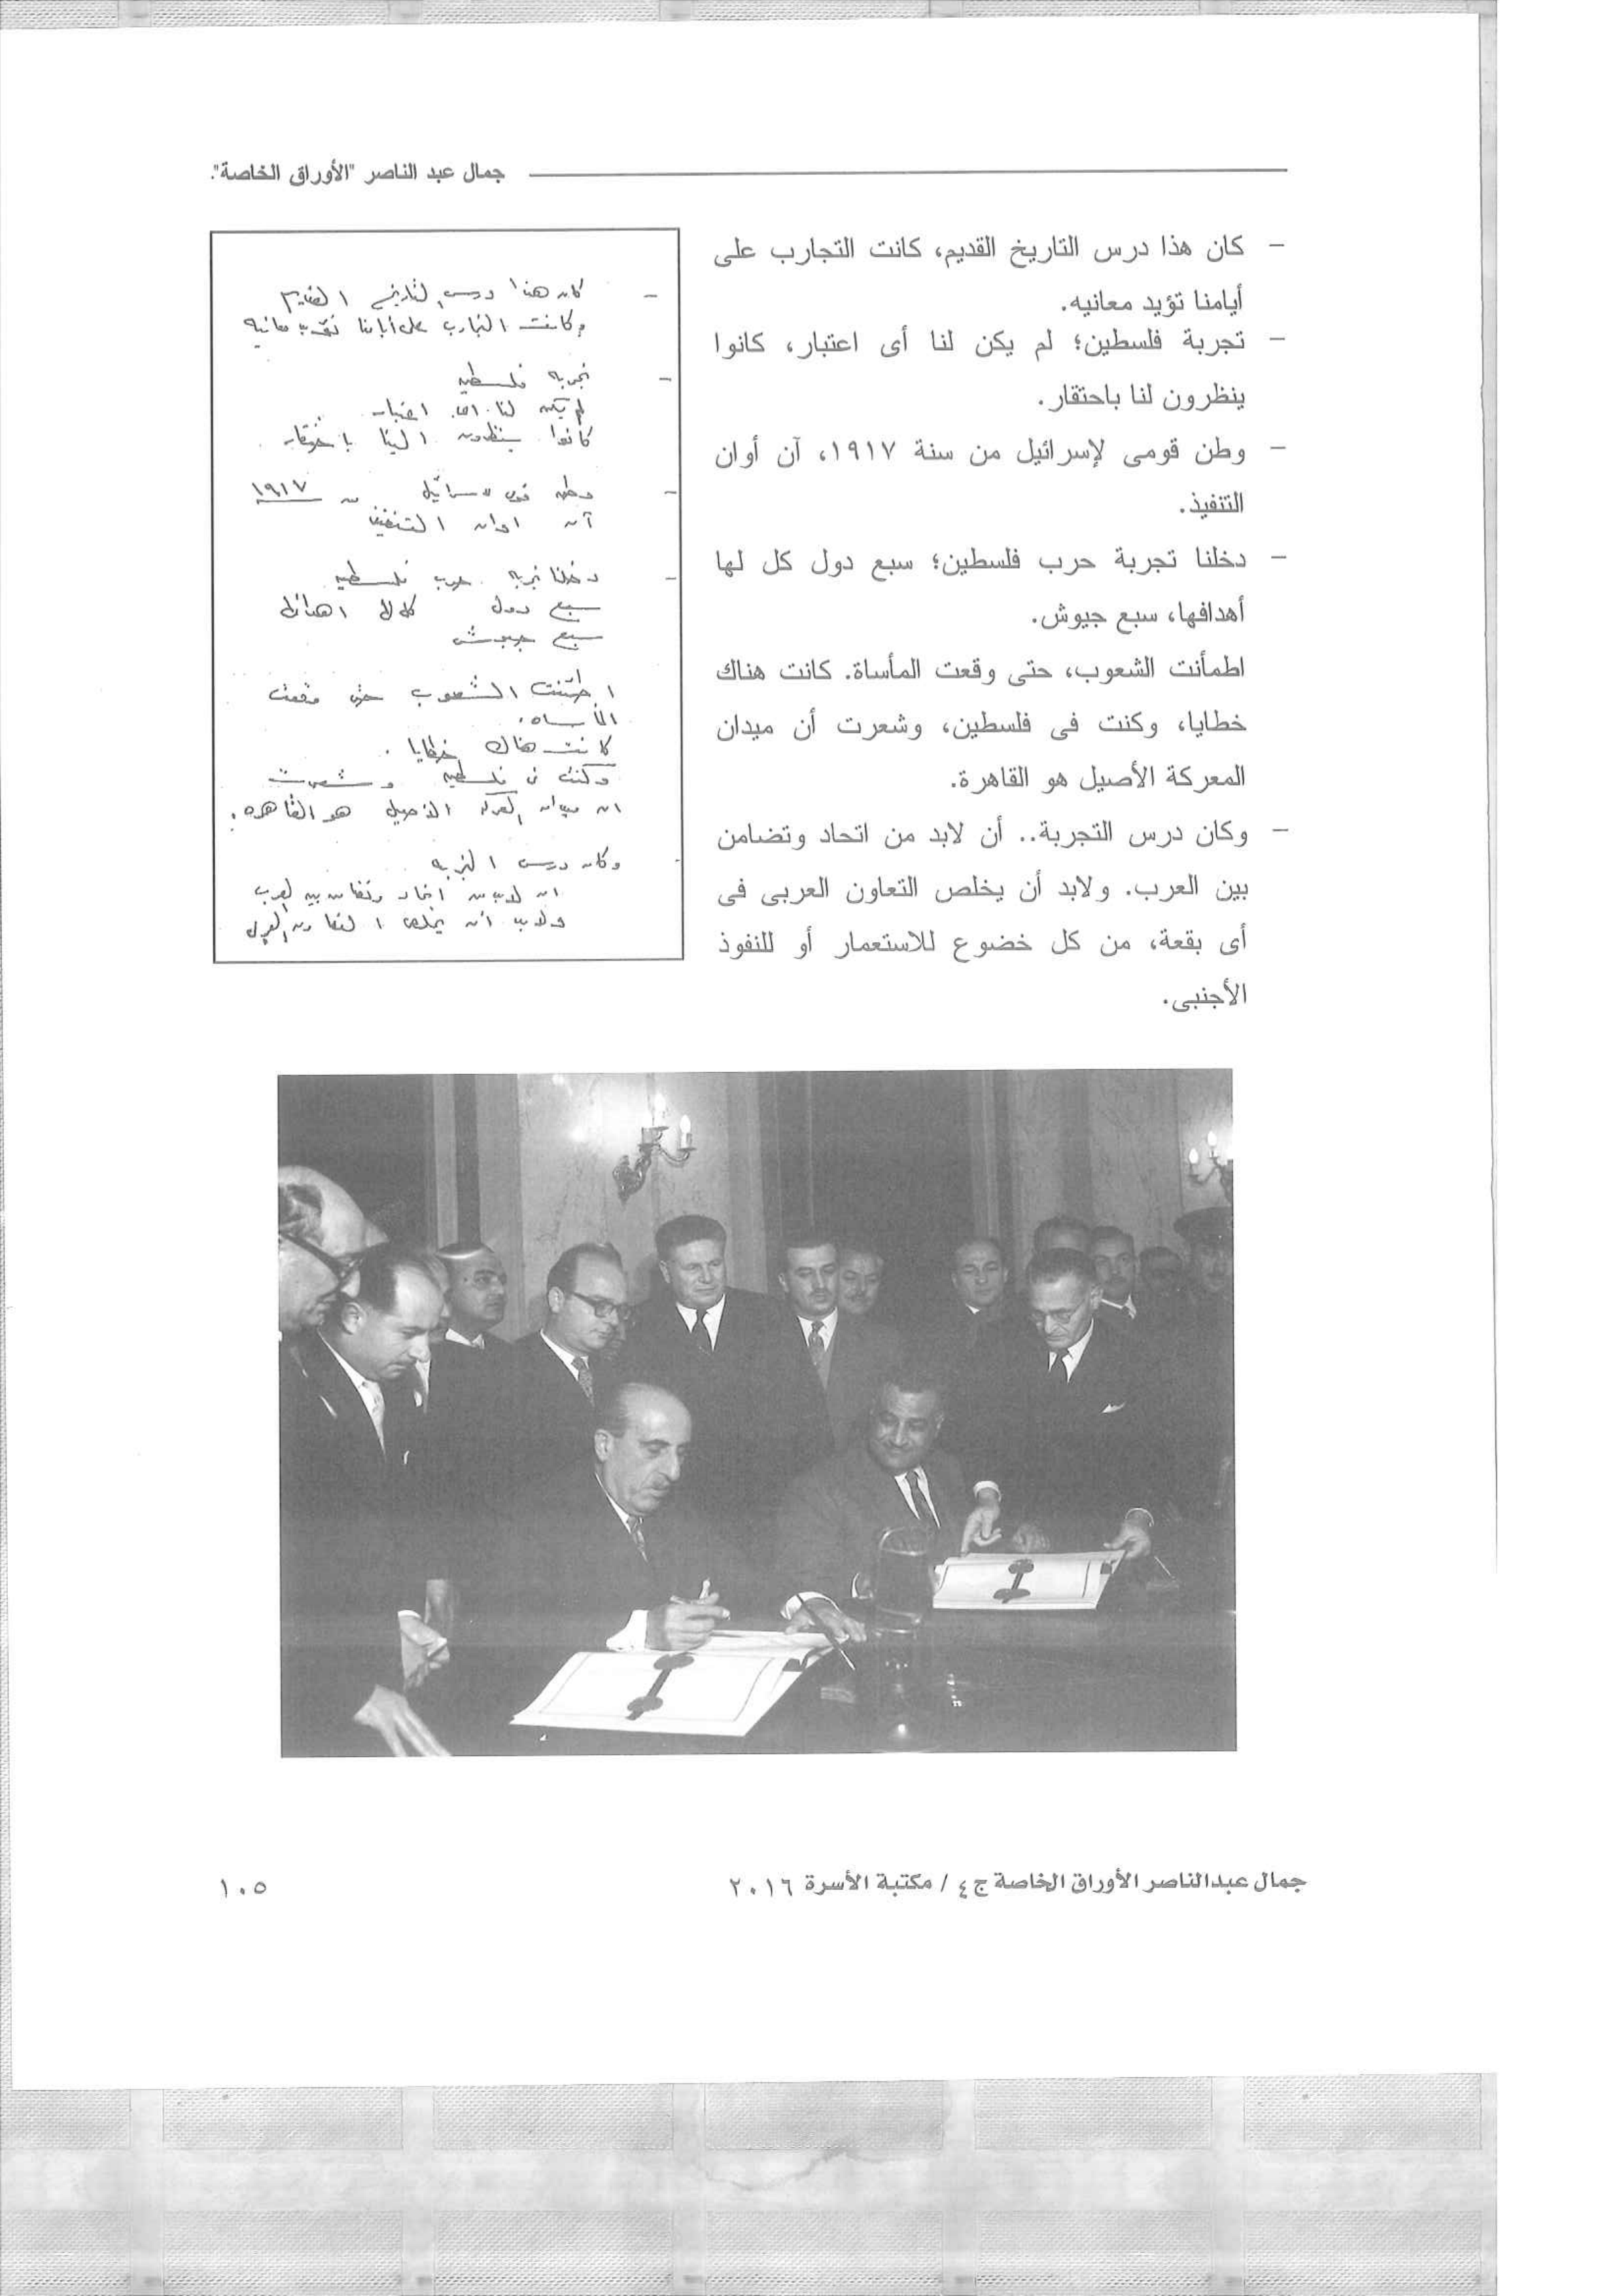 جمال عبد الناصر "الأوراق الخاصة".
– كان هذا درس التاريخ القديم، كانت التجارب على
أيامنا تؤيد معانيه.
– تجربة فلسطين؛ لم يكن لنا أى اعتبار، كانوا
ينظرون لنا باحتقار.
– وطن قومى لإسرائيل من سنة ١٩١٧، آن أوان
التنفيذ.
– دخلنا تجربة حرب فلسطين؛ سبع دول كل لها
أهدافها، سبع جيوش.
اطمأنت الشعوب، حتى وقعت المأساة. كانت هناك
خطايا، وكنت فى فلسطين، وشعرت أن ميدان
المعركة الأصيل هو القاهرة.
– وكان درس التجربة.. أن لابد من اتحاد وتضامن
بين العرب. ولابد أن يخلص التعاون العربى فى
أى بقعة، من كل خضوع للاستعمار أو للنفوذ
الأجنبى.
– كان هذا درس التاريخ القديم
وكانت التجارب على أيامنا تؤيد معانيه
– تجربه فلسطين
لم يكن لنا اى اعتبار
كانوا ينظرون الينا باحتقار.
– وطن قومى لاسرائيل من ١٩١٧
آن اوان التنفيذ
– دخلنا تجربه حرب فلسطين
سبع دول كل لها اهدافها
سبع جيوش
اطمأنت الشعوب حتى وقعت
المأساه.
كانت هناك خطايا.
وكنت فى فلسطين وشعرت
ان ميدان المعركه الاصيل هو القاهره.
- وكان درس التجربه
ان لابد من اتحاد وتضامن بين العرب
ولابد أن يخلص التعاون العربى
جمال عبدالناصر الأوراق الخاصة ج٤ / مكتبة الأسرة ٢٠١٦
١٠٥